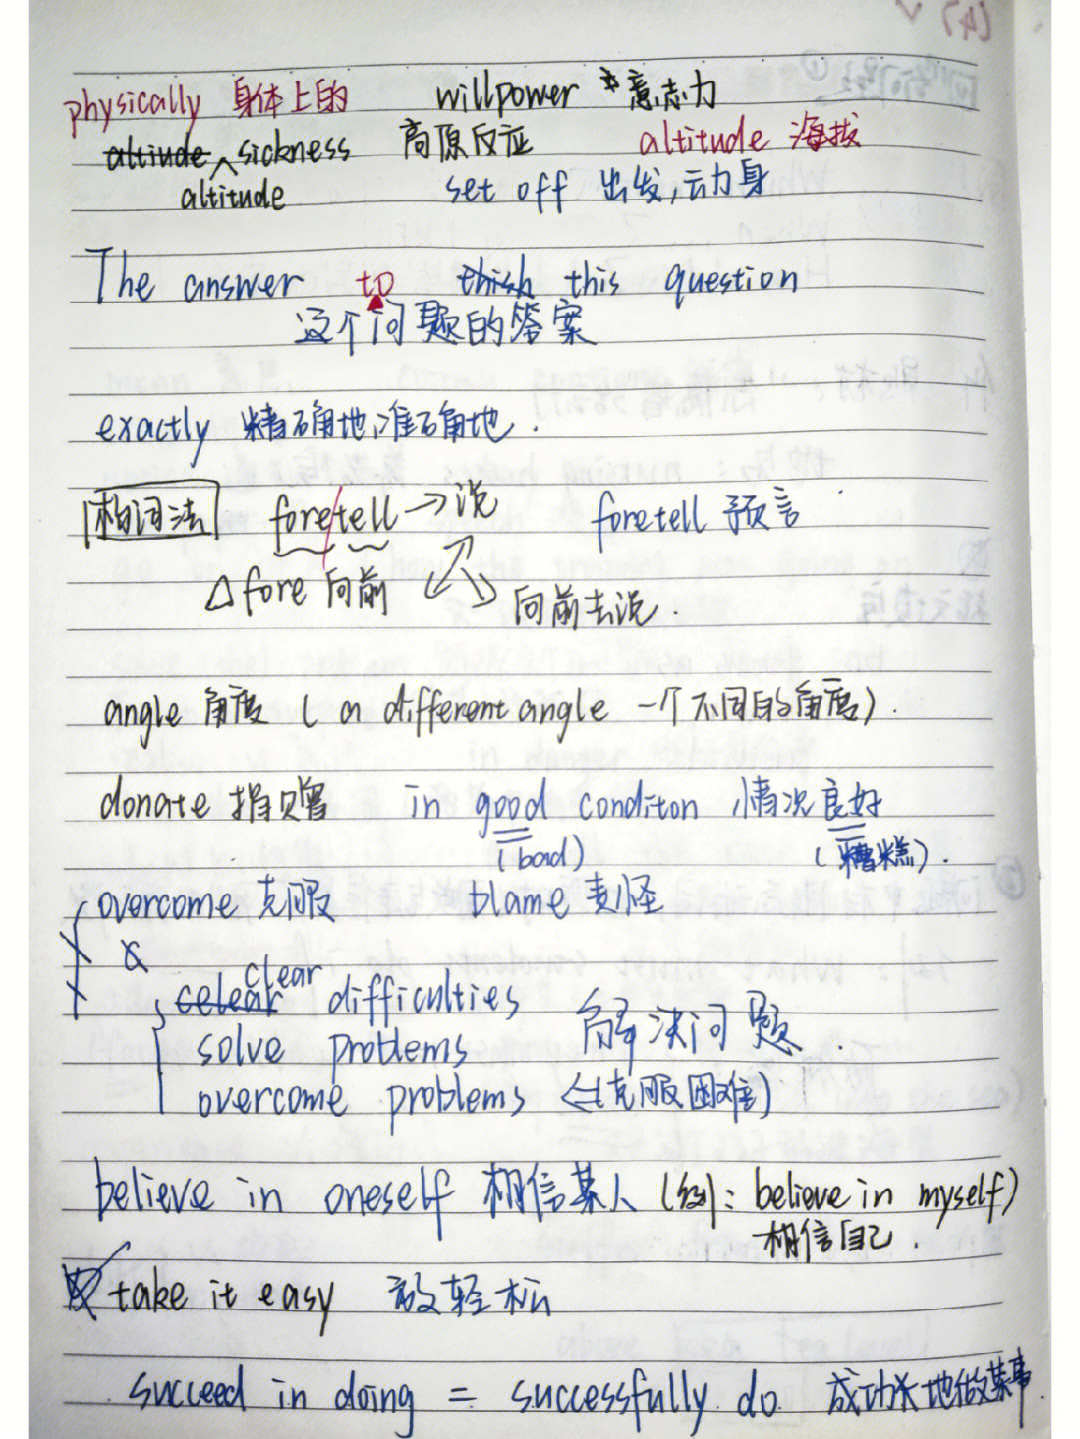 (4) √
physically 身体上的 willpower 意志力
altiude sickness 高原反应 altitude 海拔
altitude set off 出发,动身
The answer to thish this question
这个问题的答案
exactly 精确地,准确地.
构词法 foretell → 说 foretell 预言
△fore 向前 向前去说.
angle 角度 ( a different angle 一个不同的角度).
donate 捐赠 in good conditon 情况良好
(bad) (糟糕).
overcome 克服 blame 责怪
&
clear
celear difficulties 解决问题.
solve problems
overcome problems (克服困难)
believe in oneself 相信某人 (例: believe in myself)
相信自己.
take it easy 放轻松
succeed in doing = successfully do 成功地做某事.